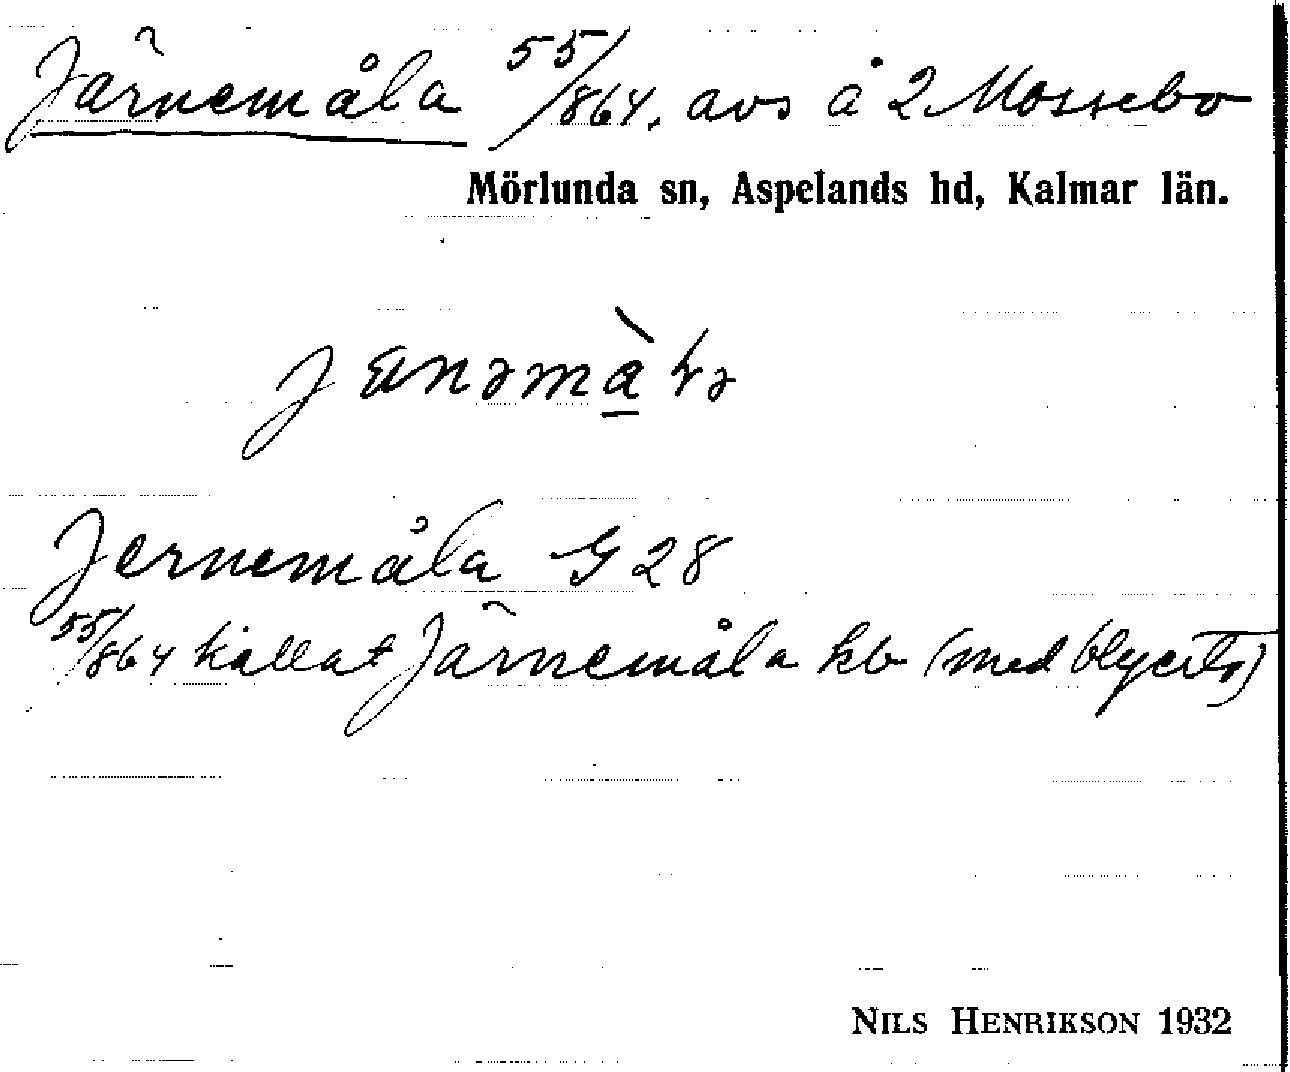 Järnemåla 55/864. avs å 2 Mossebo
Mörlunda sn, Aspelands hd, Kalmar län.
Jernemåla G 28
55/864 kallat Järnemåla kb (med blyerts)
NILS HENRIKSON 1932